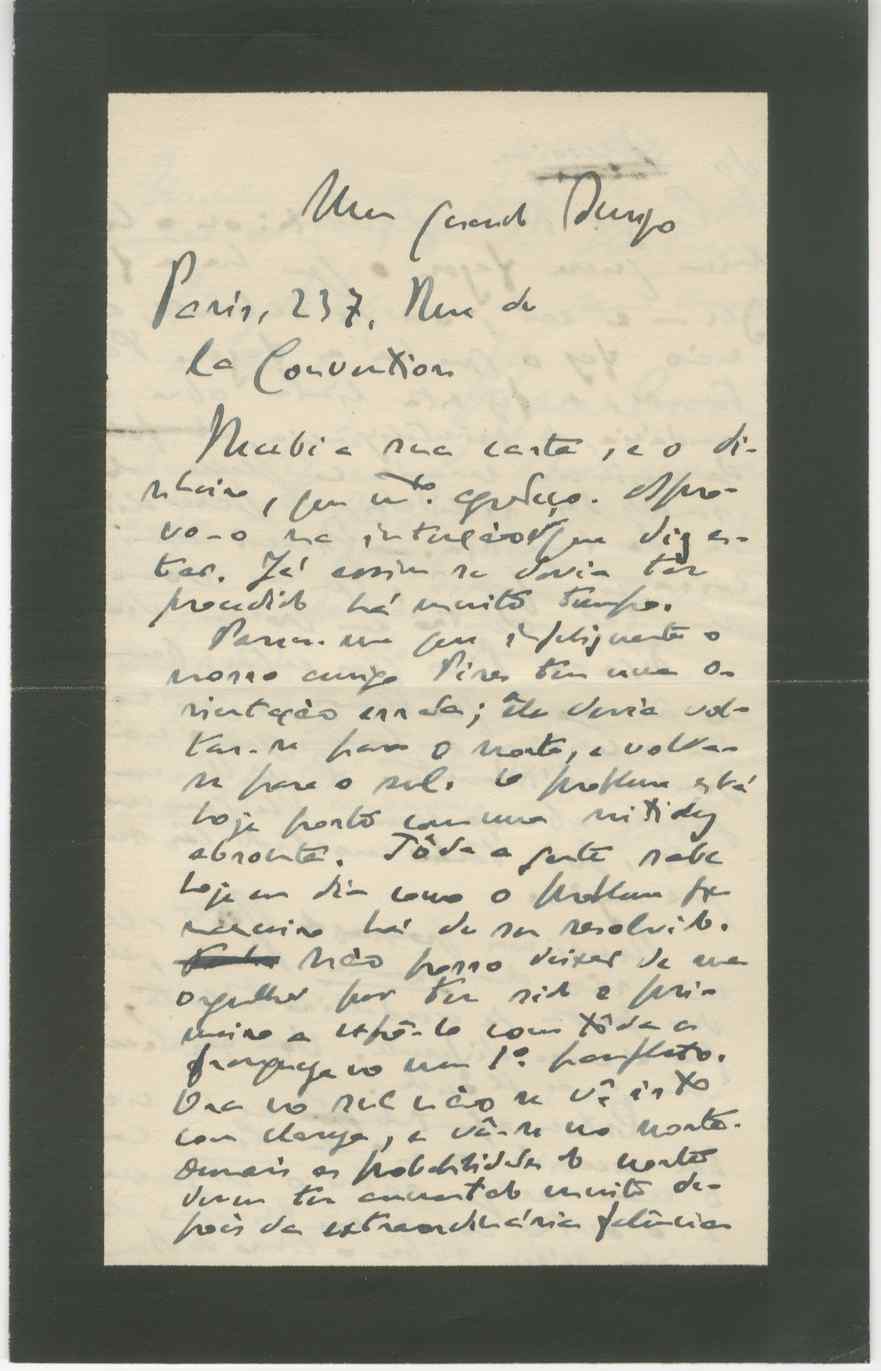 Meu grande Amigo
Paris, 237, Rue de
la Convention
Recebi a sua carta, e o di-
nheiro, que mto. agradeço. Apro-
vo-o na intenção que diz es-
tar. Já assim se devia ter
procedido há muito tempo.
Parece-me que infelizmente o
nosso amigo Pires tem uma o-
rientação errada; êle devia vol-
tar-se para o norte, e volta-
se para o sul. O problema está
hoje posto com uma nitidez
absoluta. Tôda a gente sabe
hoje em dia como o problema fi-
nanceiro há de ser resolvido.
Não posso deixar de me
orgulhar por ter sido o pri-
meiro a expô-lo com tôda a
franqueza no meu 1º. panfleto.
Ora no sul não se vê isto
com clareza, e vê-se no norte.
Demais as probabilidades do norte
devem ter aumentado muito de-
pois da extraordinária falência